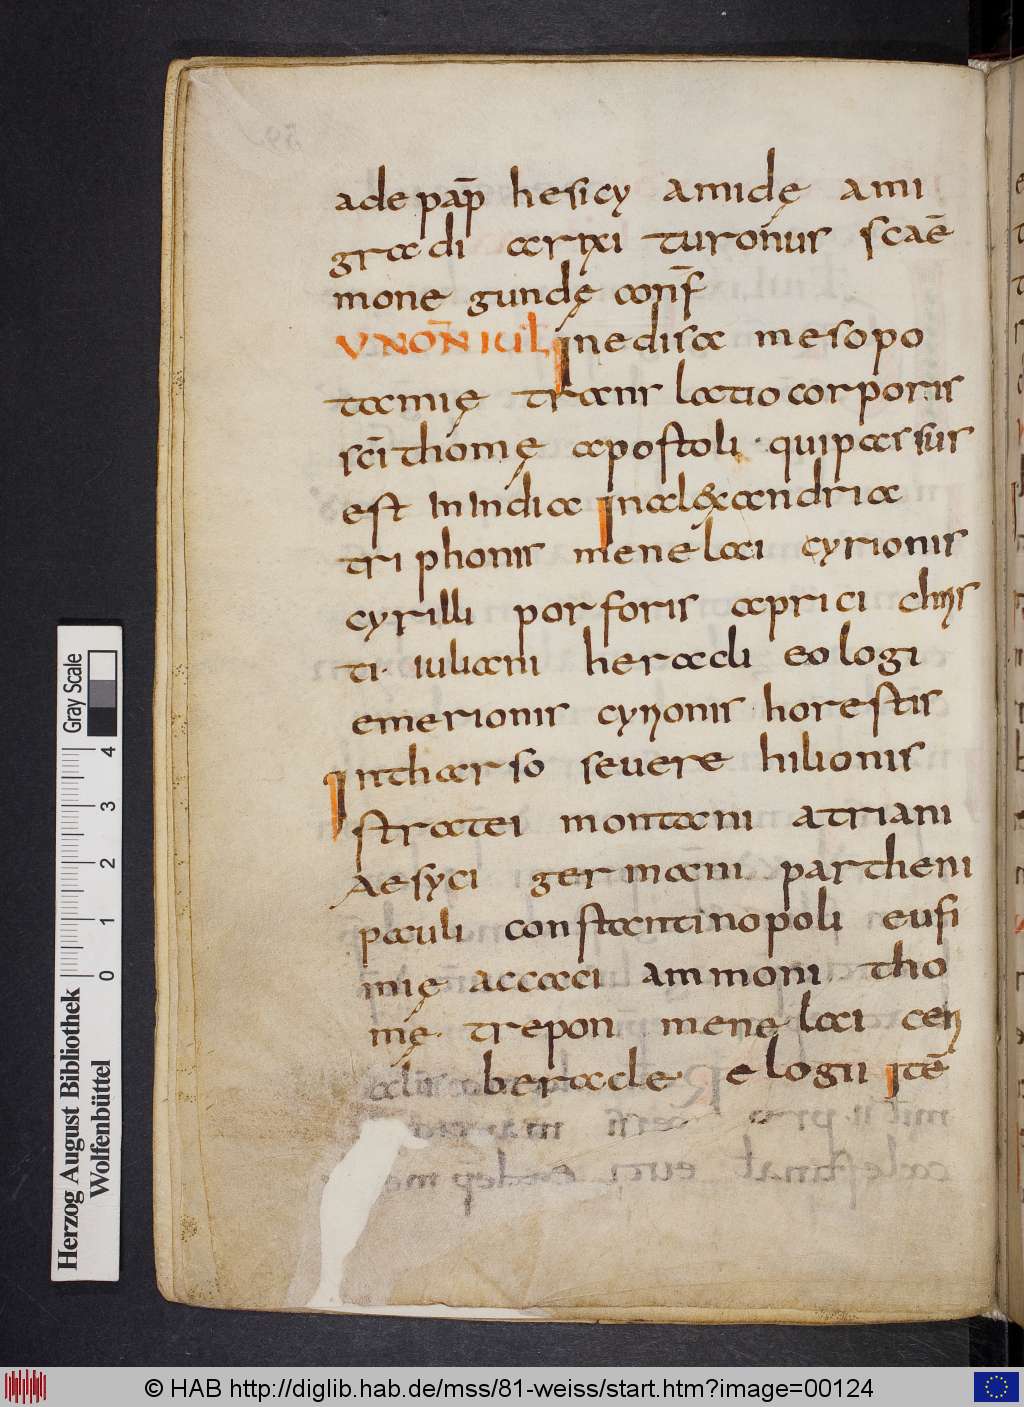 ade pap̄ hesicy amidę ami
gradi arixi turonus scaē
mone gundę conf̄
V NOÑ IUL Inedisa mesopo
tamię trans latio corporis
sc̄i thomę apostoli · qui passus
est In India In alexandria
triphonis menelaci cyrionis
cyrilli porforis aprici
ti· iuliani heracli eologi
emerionis cynonis · horestis
In tharso severe hilionis
stratei montani atriani
Aesyci germani partheni
pauli constantinopoli eufi
mię accaci ammoni tho
mę · trepon menę laci cen
beracle elogii itē
Gray Scale
0 1 2 3 4
Herzog August Bibliothek
Wolfenbüttel
© HAB http://diglib.hab.de/mss/81-weiss/start.htm?image=00124